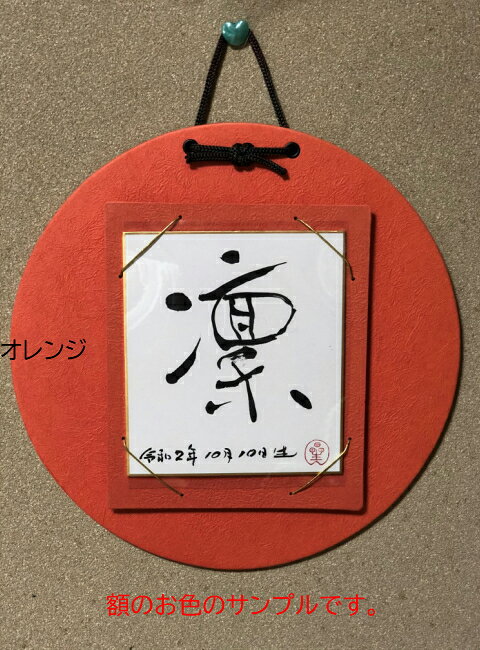 凛
令和2年 10月10日生
オレンジ
額のお色のサンプルです。